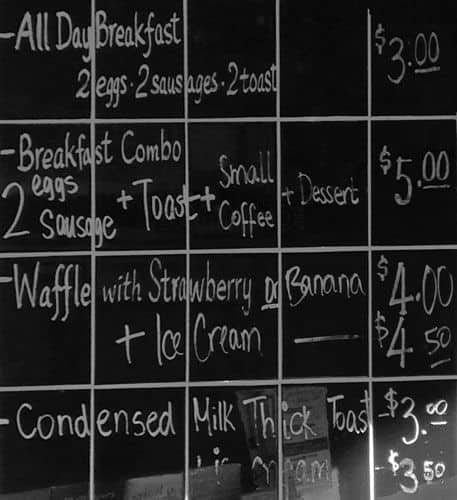 - All Day Breakfast $3.00
2 eggs · 2 sausages · 2 toast
- Breakfast Combo $5.00
2 eggs Sausage + Toast + Small Coffee + Dessert
- Waffle with Strawberry or Banana $4.00
+ Ice Cream — $4.50
- Condensed Milk Thick Toast $3.00
$3.50